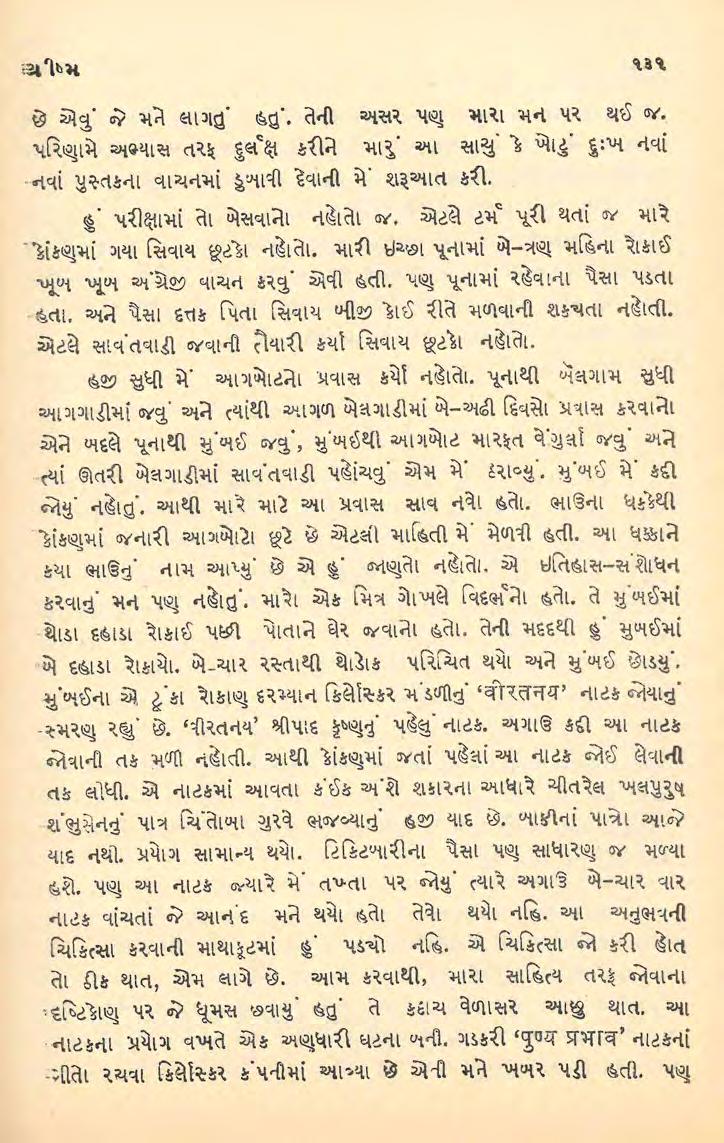 ગ્રીષ્મ ૧૩૧
છે એવું જે મને લાગતું હતું. તેની અસર પણ મારા મન પર થઈ જ.
પરિણામે અભ્યાસ તરફ દુર્લક્ષ કરીને મારું આ સાચું કે ખોટું દુઃખ નવાં
નવાં પુસ્તકના વાચનમાં ડુબાવી દેવાની મેં શરૂઆત કરી.
હું પરીક્ષામાં તો બેસવાનો નહોતો જ. એટલે ટર્મ પૂરી થતાં જ મારે
કોંકણમાં ગયા સિવાય છૂટકો નહોતો. મારી ઇચ્છા પૂનામાં બે-ત્રણ મહિના રોકાઈ
ખૂબ ખૂબ અંગ્રેજી વાચન કરવું એવી હતી. પણ પૂનામાં રહેવાના પૈસા પડતા
હતા. અને પૈસા દત્તક પિતા સિવાય બીજી કોઈ રીતે મળવાની શક્યતા નહોતી.
એટલે સાવંતવાડી જવાની તૈયારી કર્યા સિવાય છૂટકો નહોતો.
હજી સુધી મેં આગબોટનો પ્રવાસ કર્યો નહોતો. પૂનાથી બેલગામ સુધી
આગગાડીમાં જવું અને ત્યાંથી આગળ બેલગાડીમાં બે-અઢી દિવસો પ્રવાસ કરવાનો
એને બદલે પૂનાથી મુંબઈ જવું, મુંબઈથી આગબોટ મારફત વેંગુર્લા જવું અને
ત્યાં ઊતરી બેલગાડીમાં સાવંતવાડી પહોંચવું એમ મેં ઠરાવ્યું. મુંબઈ મેં કદી
જોયું નહોતું. આથી મારે માટે આ પ્રવાસ સાવ નવો હતો. ભાઉના ધક્કેથી
કોંકણમાં જનારી આગબોટો છૂટે છે એટલી માહિતી મેં મેળવી હતી. આ ધક્કાને
કયા ભાઉનું નામ આપ્યું છે એ હું જાણતો નહોતો. એ ઇતિહાસ-સંશોધન
કરવાનું મન પણ નહોતું. મારો એક મિત્ર ગોખલે વિદર્ભનો હતો. તે મુંબઈમાં
થોડા દહાડા રોકાઈ પછી પોતાને ઘેર જવાનો હતો. તેની મદદથી હું મુંબઈમાં
બે દહાડા રોકાયો. બે-ચાર રસ્તાથી થોડોક પરિચિત થયો અને મુંબઈ છોડયું.
મુંબઈના એ ટૂંકા રોકાણ દરમ્યાન કિર્લોસ્કર મંડળીનું ‘वीरतनय’ નાટક જોયાનું
સ્મરણ રહ્યું છે. ‘વીરતનય’ શ્રીપાદ કૃષ્ણનું પહેલું નાટક. અગાઉ કદી આ નાટક
જોવાની તક મળી નહોતી. આથી કોંકણમાં જતાં પહેલાં આ નાટક જોઈ લેવાની
તક લીધી. એ નાટકમાં આવતા કંઈક અંશે શકારના આધારે ચીતરેલ ખલપુરુષ
શંભુસેનનું પાત્ર ચિંતોબા ગુરવે ભજવ્યાનું હજી યાદ છે. બાકીનાં પાત્રો આજે
યાદ નથી. પ્રયોગ સામાન્ય થયો. ટિકિટબારીના પૈસા પણ સાધારણ જ મળ્યા
હશે. પણ આ નાટક જ્યારે મેં તખ્તા પર જોયું ત્યારે અગાઉ બે-ચાર વાર
નાટક વાંચતાં જે આનંદ મને થયો હતો તેવો થયો નહિ. આ અનુભવની
ચિકિત્સા કરવાની માથાકૂટમાં હું પડયો નહિ. એ ચિકિત્સા જો કરી હોત
તો ઠીક થાત, એમ લાગે છે. આમ કરવાથી, મારા સાહિત્ય તરફ જોવાના
દૃષ્ટિકોણ પર જે ધૂમસ છવાયું હતું તે કદાચ વેળાસર આછુ થાત. આ
નાટકના પ્રયોગ વખતે એક અણધારી ઘટના બની. ગડકરી ‘पुण्य प्रभाव’ નાટકનાં
ગીતો રચવા કિર્લોસ્કર કંપનીમાં આવ્યા છે એની મને ખબર પડી હતી. પણ